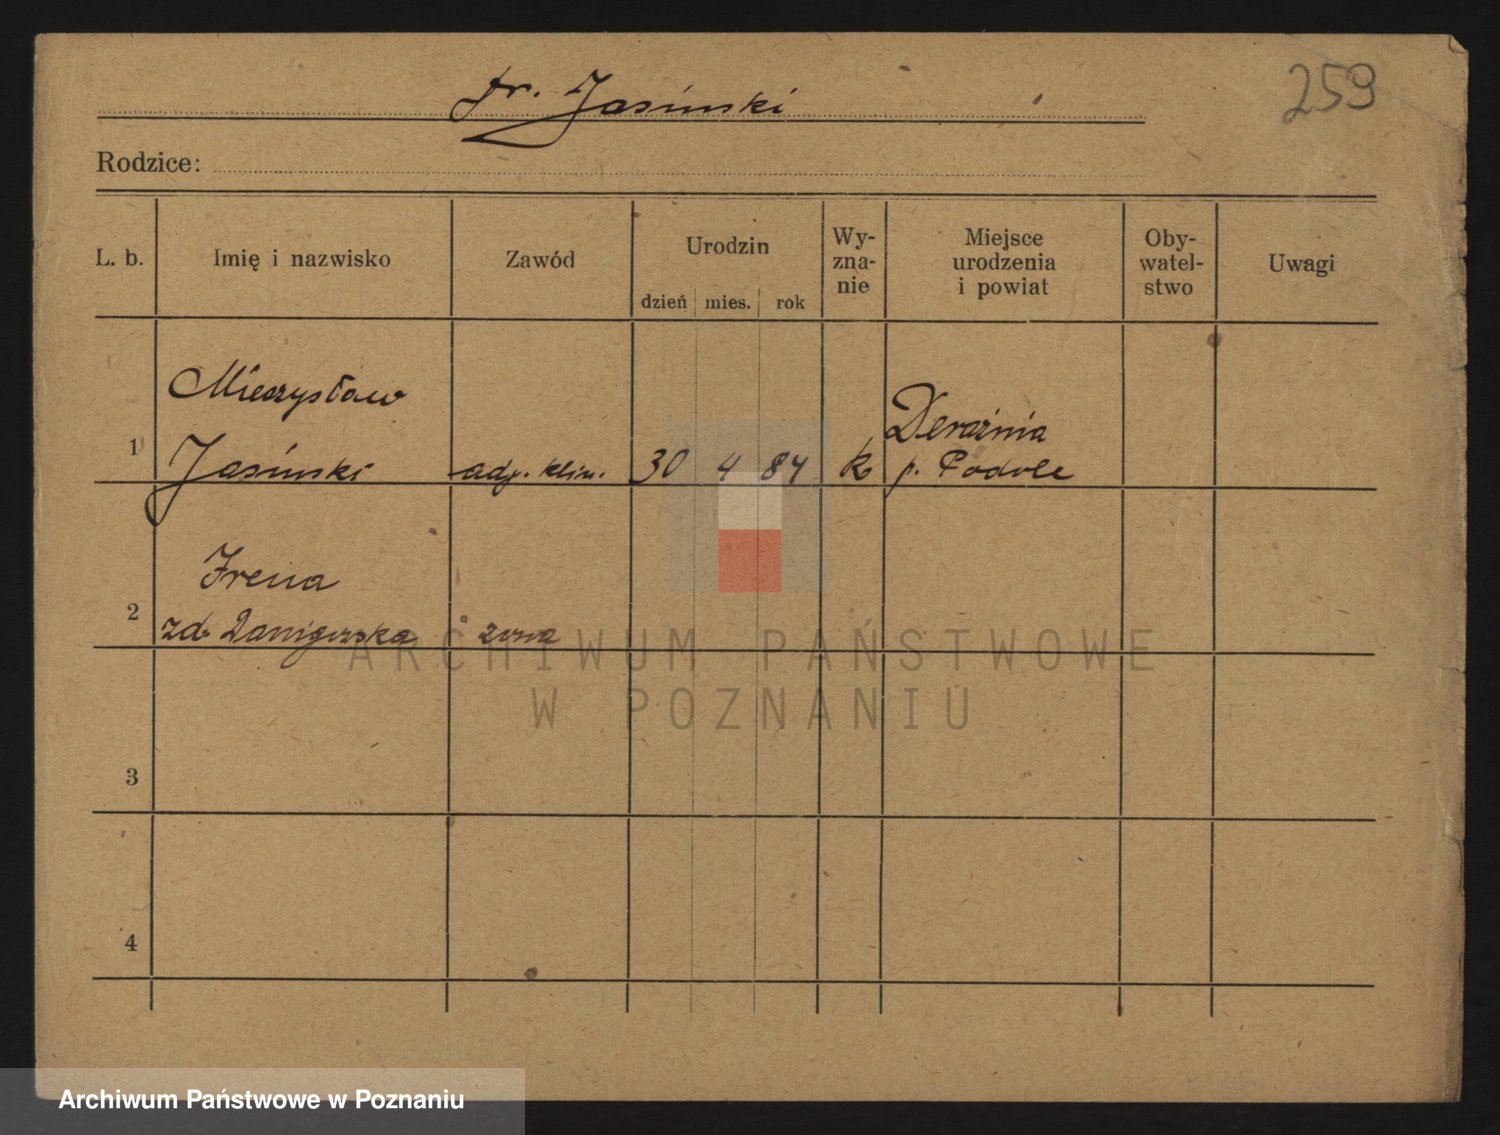 Dr. Jasinski
259
Rodzice:
L. b. Imię i nazwisko Zawód Urodzin dzień mies. rok Wy-zna-nie Miejsce urodzenia i powiat Oby-watel-stwo Uwagi
Mieczysław
1 Jasinski adj. klin. 30 4 84 k Derażnia
p. Podole
Irena
2 zd. żona
3
4
ARCHIWUM PAŃSTWOWE
W POZNANIU
Archiwum Państwowe w Poznaniu